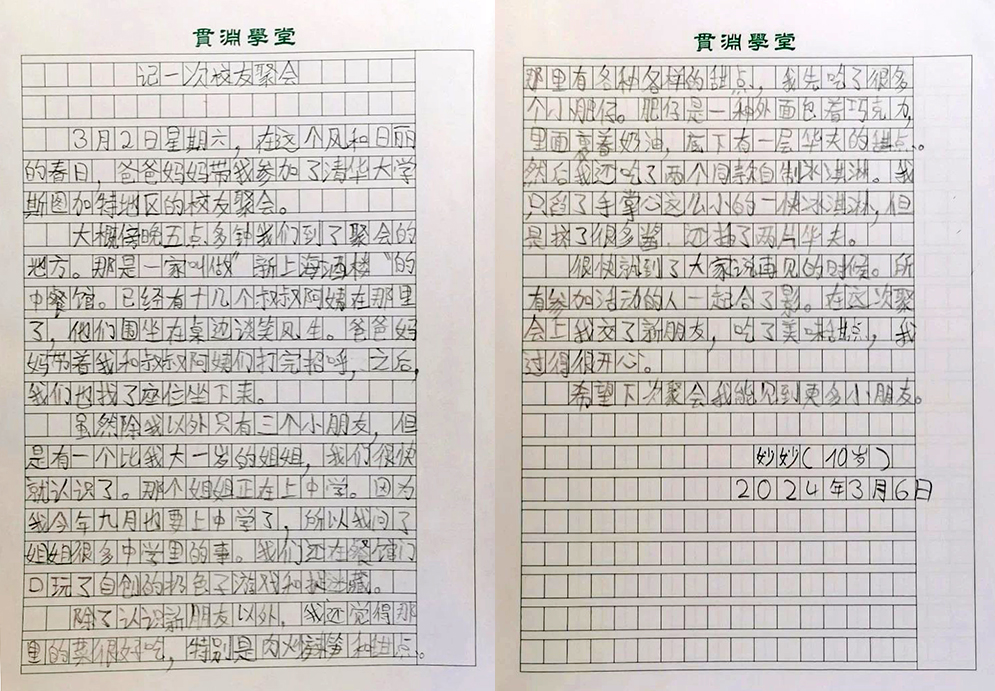 貫淵學堂
记一次校友聚会
3月2日星期六，在这个风和日丽
的春日，爸爸妈妈带我参加了清华大学
斯图加特地区的校友聚会。
大概傍晚五点多钟我们到了聚会的
地方。那是一家叫做"新上海酒楼"的
中餐馆。已经有十几个叔叔阿姨在那里
了，他们围坐在桌边谈笑风生。爸爸妈
妈带着我和叔叔阿姨们打完招呼，之后，
我们也找了座位坐下来。
虽然除我以外只有三个小朋友，但
是有一个比我大一岁的姐姐，我们很快
就认识了。那个姐姐正在上中学。因为
我今年九月也要上中学了，所以我问了
姐姐很多中学里的事。我们还在餐馆门
口玩了自创的扔色子游戏和捉迷藏。
除了认识新朋友以外，我还觉得那
里的菜很好吃，特别是肉炒辣笋和甜点。
貫淵學堂
那里有各种各样的甜点，我先吃了很多
个小肥仔。肥仔是一种外面包着巧克力，
里面裹着奶油，底下有一层华夫的甜点。
然后我还吃了两个同款自制冰淇淋。我
只舀了手掌心这么小的一块冰淇淋，但
是挤了很多酱，还插了两片华夫。
很快就到了大家说再见的时候。所
有参加活动的人一起合了影。在这次聚
会上我交了新朋友，吃了美味甜点，我
过得很开心。
希望下次聚会我能见到更多小朋友。
妙妙（10岁）
2024年3月6日